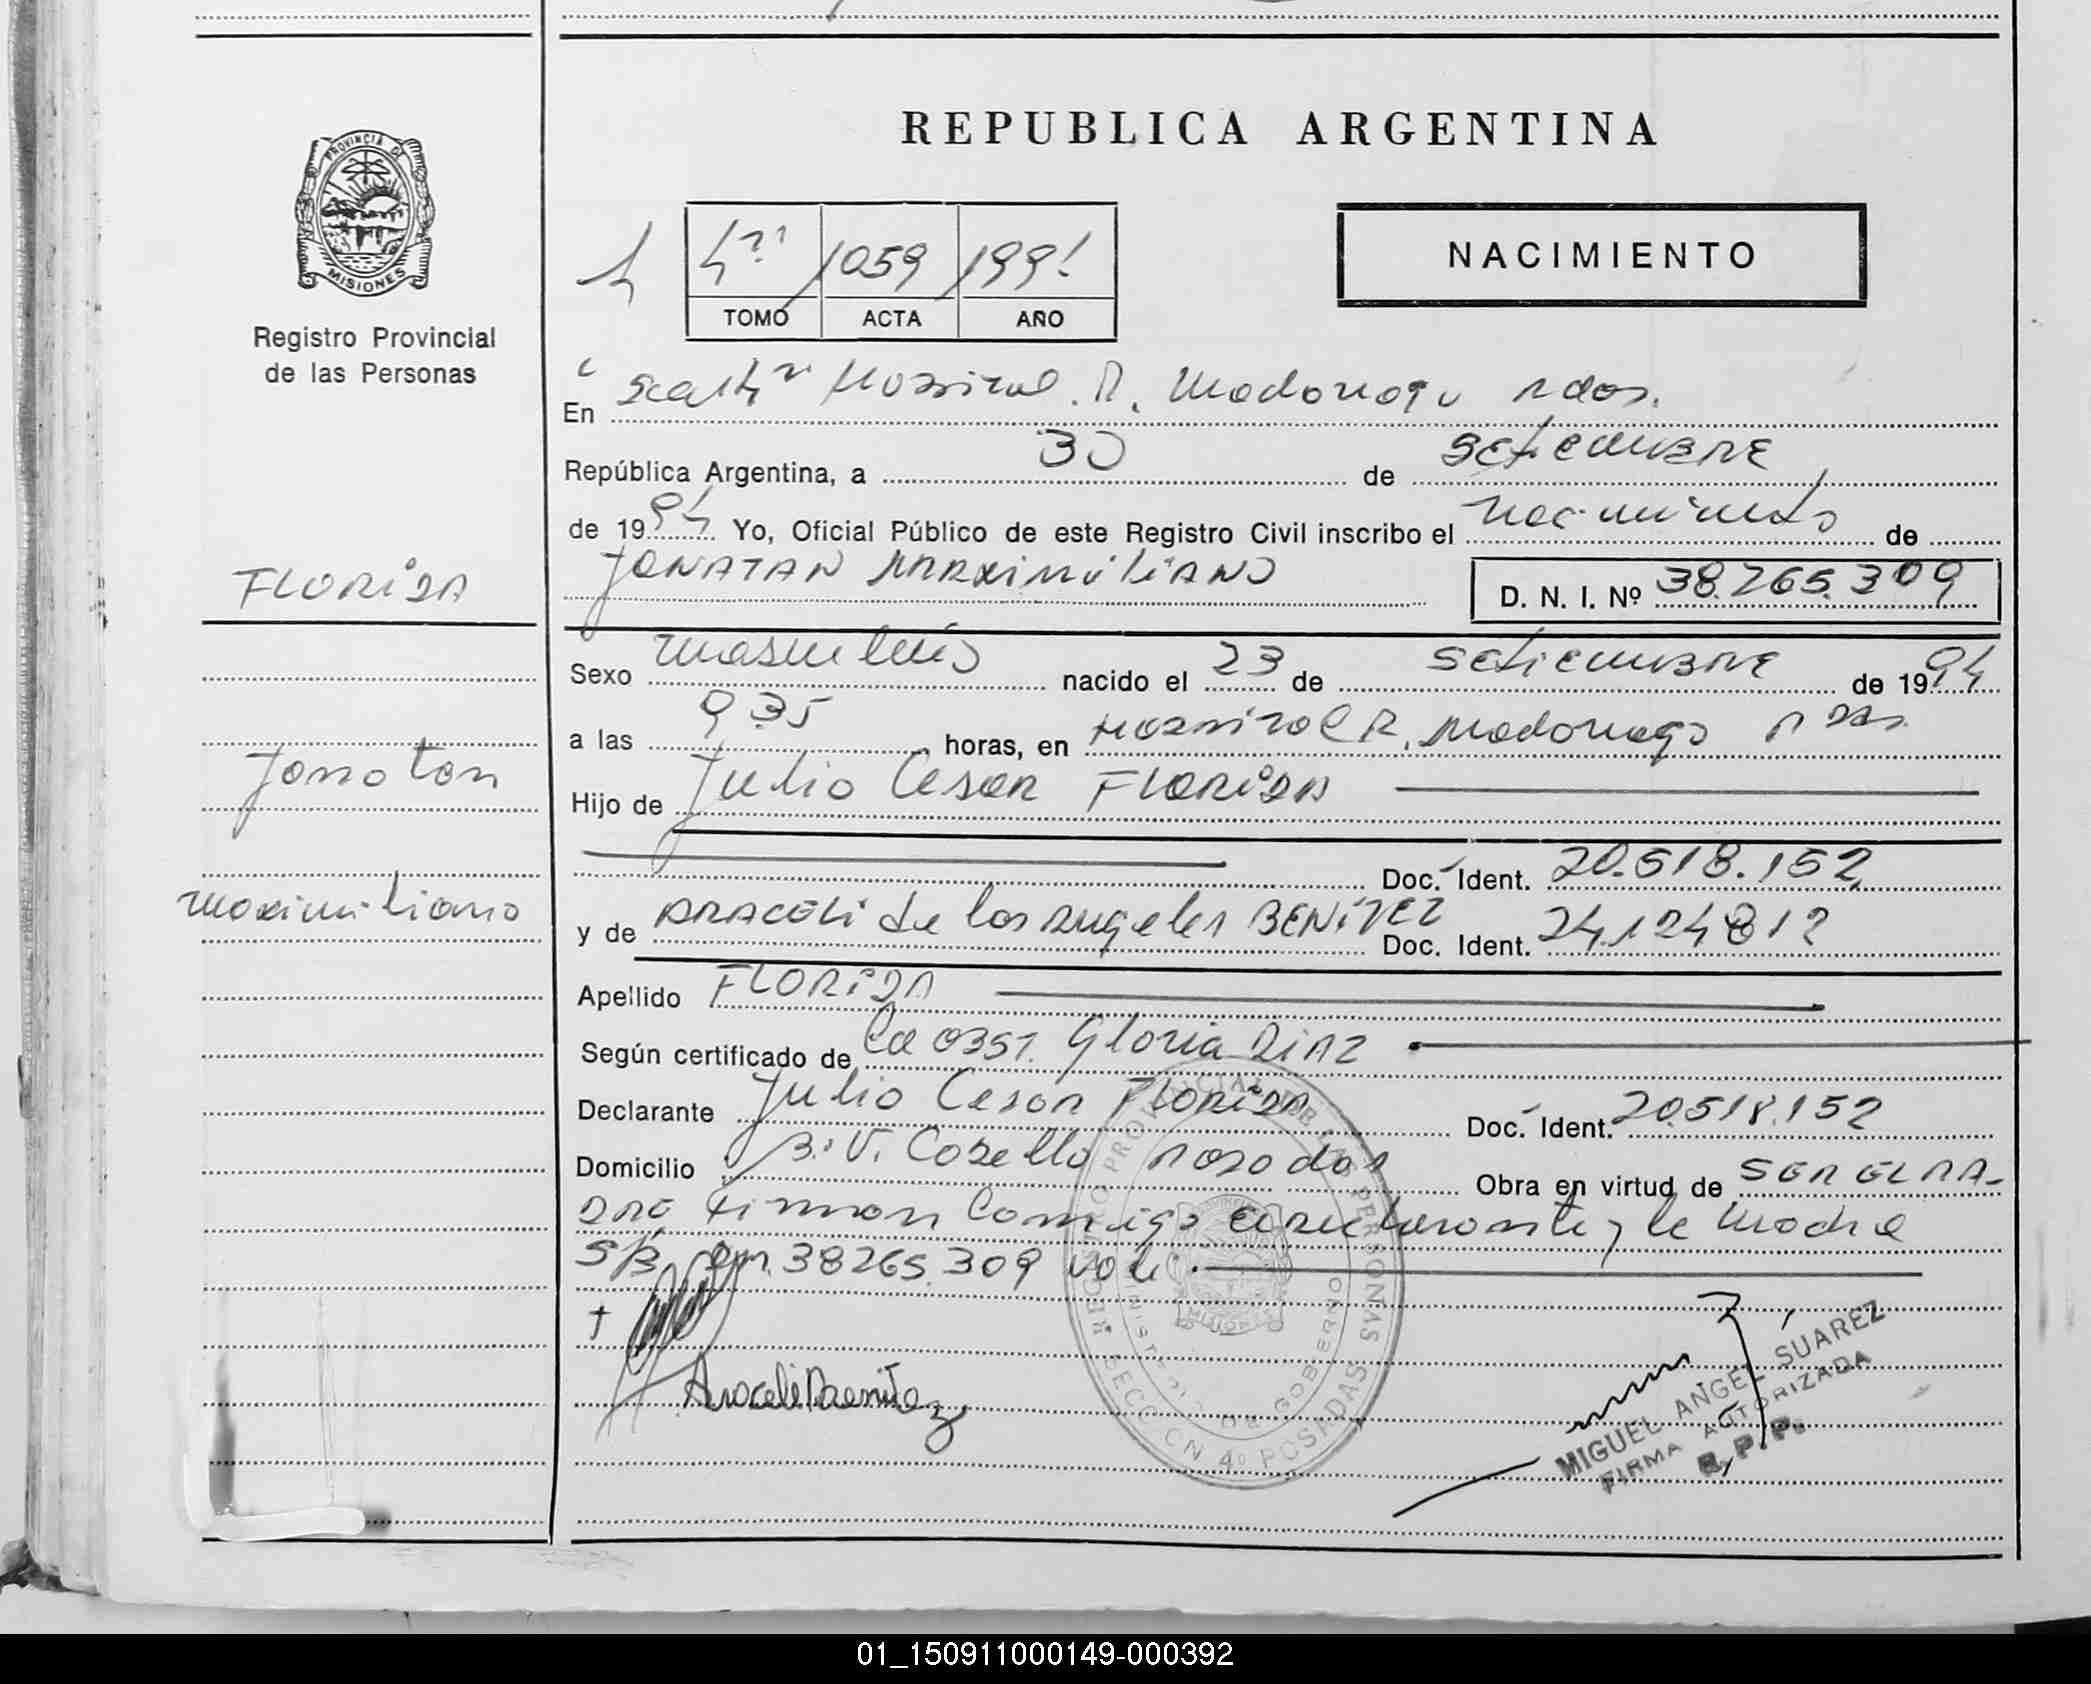 REPUBLICA ARGENTINA
PROVINCIA DE
MISIONES
Registro Provincial
de las Personas
1059
TOMO ACTA AÑO
NACIMIENTO
En Hospital R. Madariaga Pdas.
República Argentina, a 30 de setiembre
de 1994 Yo, Oficial Público de este Registro Civil inscribo el nacimiento de
JONATAN MAXIMILIANO
D. N. I. Nº 38.265.309
FLORIDA
Jonatan
Maximiliano
Sexo masculino nacido el 23 de setiembre de 1994
a las 9 35 horas, en Hospital R. Madariaga Pdas.
Hijo de Julio Cesar FLORIDA
Doc. Ident. 20.518.152
y de ARACELI de los Angeles BENITEZ Doc. Ident. 24.124812
Apellido FLORIDA
Según certificado de La Obst. Gloria DIAZ
Declarante Julio Cesar FLORIDA Doc. Ident. 20518.152
Domicilio Posadas Obra en virtud de SER EL PA-
DRE Firman Conmigo el declarante y la Madre
S/B 38265.309 vale
Araceli Benitez
REGISTRO PROVINCIAL DE LAS PERSONAS
MINISTERIO DE GOBIERNO
SECCION 4º POSADAS
MISIONES
MIGUEL ANGEL SUAREZ
FIRMA AUTORIZADA
R.P.P.
01_150911000149-000392